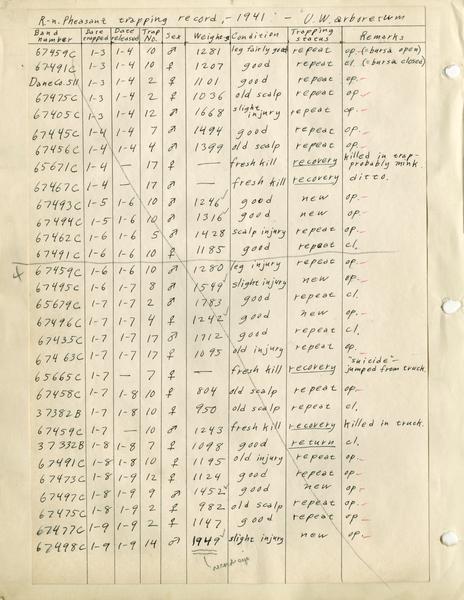 R-n. Pheasant trapping record, - 1941 - U.W. arboretum
Band number Date trapped Date released Trap No. Sex Weight Condition Trapping status Remarks
67459C 1-3 1-4 10 ♂ 1281 leg fairly good repeat op. (= bursa open)
67491C 1-3 1-4 10 ♀ 1207 good repeat cl. (= bursa closed)
Dane Co. 511 1-3 1-4 2 ♀ 1101 good repeat op.
67475C 1-3 1-4 2 ♀ 1036 old scalp repeat op.
67405C 1-3 1-4 12 ♂ 1668 slight injury repeat op.
67445C 1-4 1-4 7 ♂ 1494 good repeat op.
67456C 1-4 1-4 4 ♂ 1399 old scalp repeat op.
65671C 1-4 — 17 ♀ — fresh kill recovery killed in trap- probably mink.
67467C 1-4 — 17 ♂ — fresh kill recovery ditto.
67493C 1-5 1-6 10 ♀ 1246 good new op.
67494C 1-5 1-6 10 ♂ 1316 good new op.
67462C 1-6 1-6 5 ♂ 1428 scalp injury repeat op.
67491C 1-6 1-6 10 ♀ 1185 good repeat cl.
67459C 1-6 1-6 10 ♂ 1280 leg injury repeat op.
67495C 1-6 1-7 8 ♂ 1549 slight injury new op.
65679C 1-7 1-7 2 ♂ 1783 good repeat cl.
67496C 1-7 1-7 4 ♀ 1242 good new op.
67435C 1-7 1-7 17 ♂ 1712 good repeat cl.
67463C 1-7 1-7 17 ♀ 1095 old injury repeat op.
65665C 1-7 — 7 ♀ — fresh kill recovery "suicide"- jumped from truck.
67458C 1-7 1-8 10 ♀ 804 old scalp repeat op.
37382B 1-7 1-8 10 ♀ 950 old scalp repeat cl.
67459C 1-7 — 10 ♂ 1243 fresh kill recovery killed in truck.
37332B 1-8 1-8 7 ♀ 1098 good return cl.
67491C 1-8 1-8 10 ♀ 1195 old injury repeat op.
67473C 1-8 1-9 12 ♀ 1124 good repeat op.
67497C 1-8 1-9 9 ♂ 1452 good new op.
67475C 1-8 1-9 2 ♀ 982 old scalp repeat op.
67477C 1-9 1-9 2 ♀ 1147 good repeat op.
67498C 1-9 1-9 14 ♂ 1949 slight injury new op.